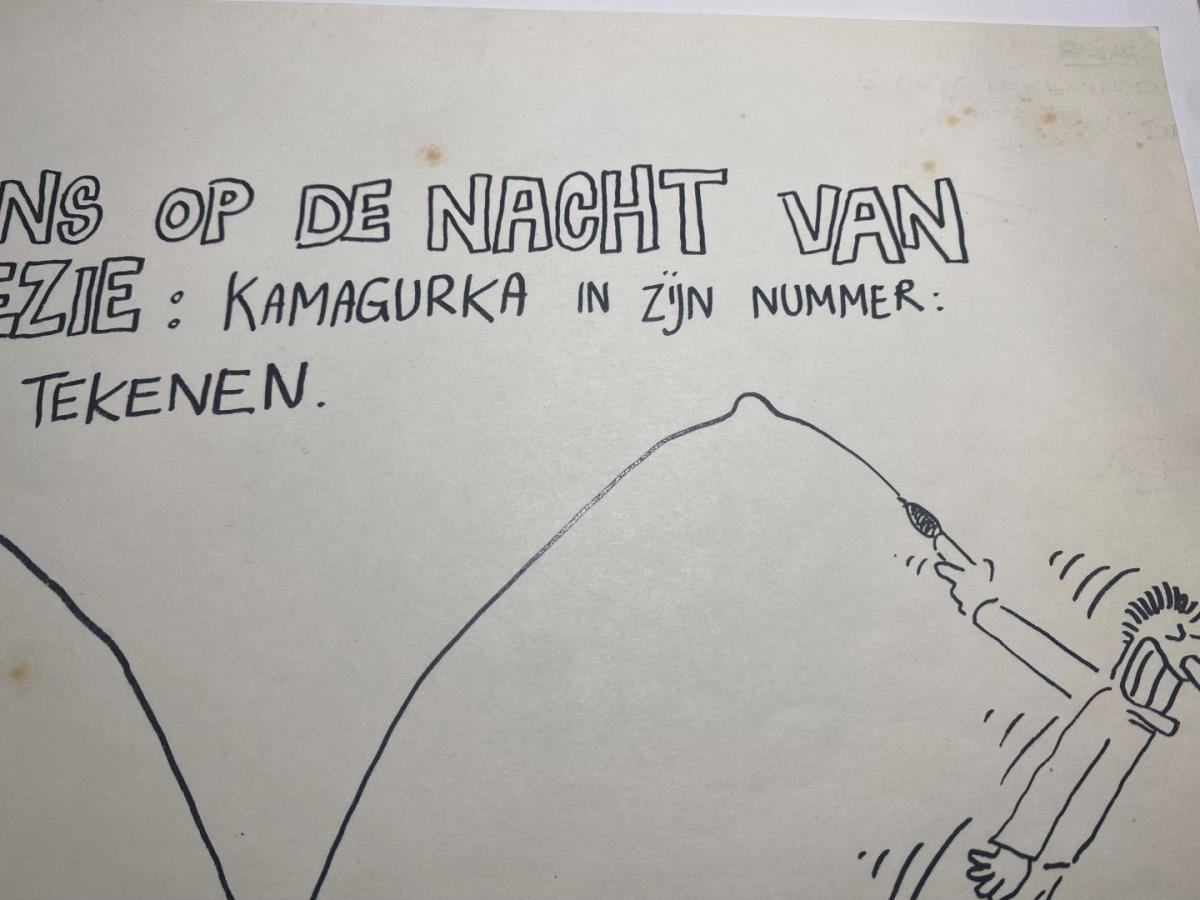 NS OP DE NACHT VAN
EZIE: KAMAGURKA IN ZIJN NUMMER:
TEKENEN.